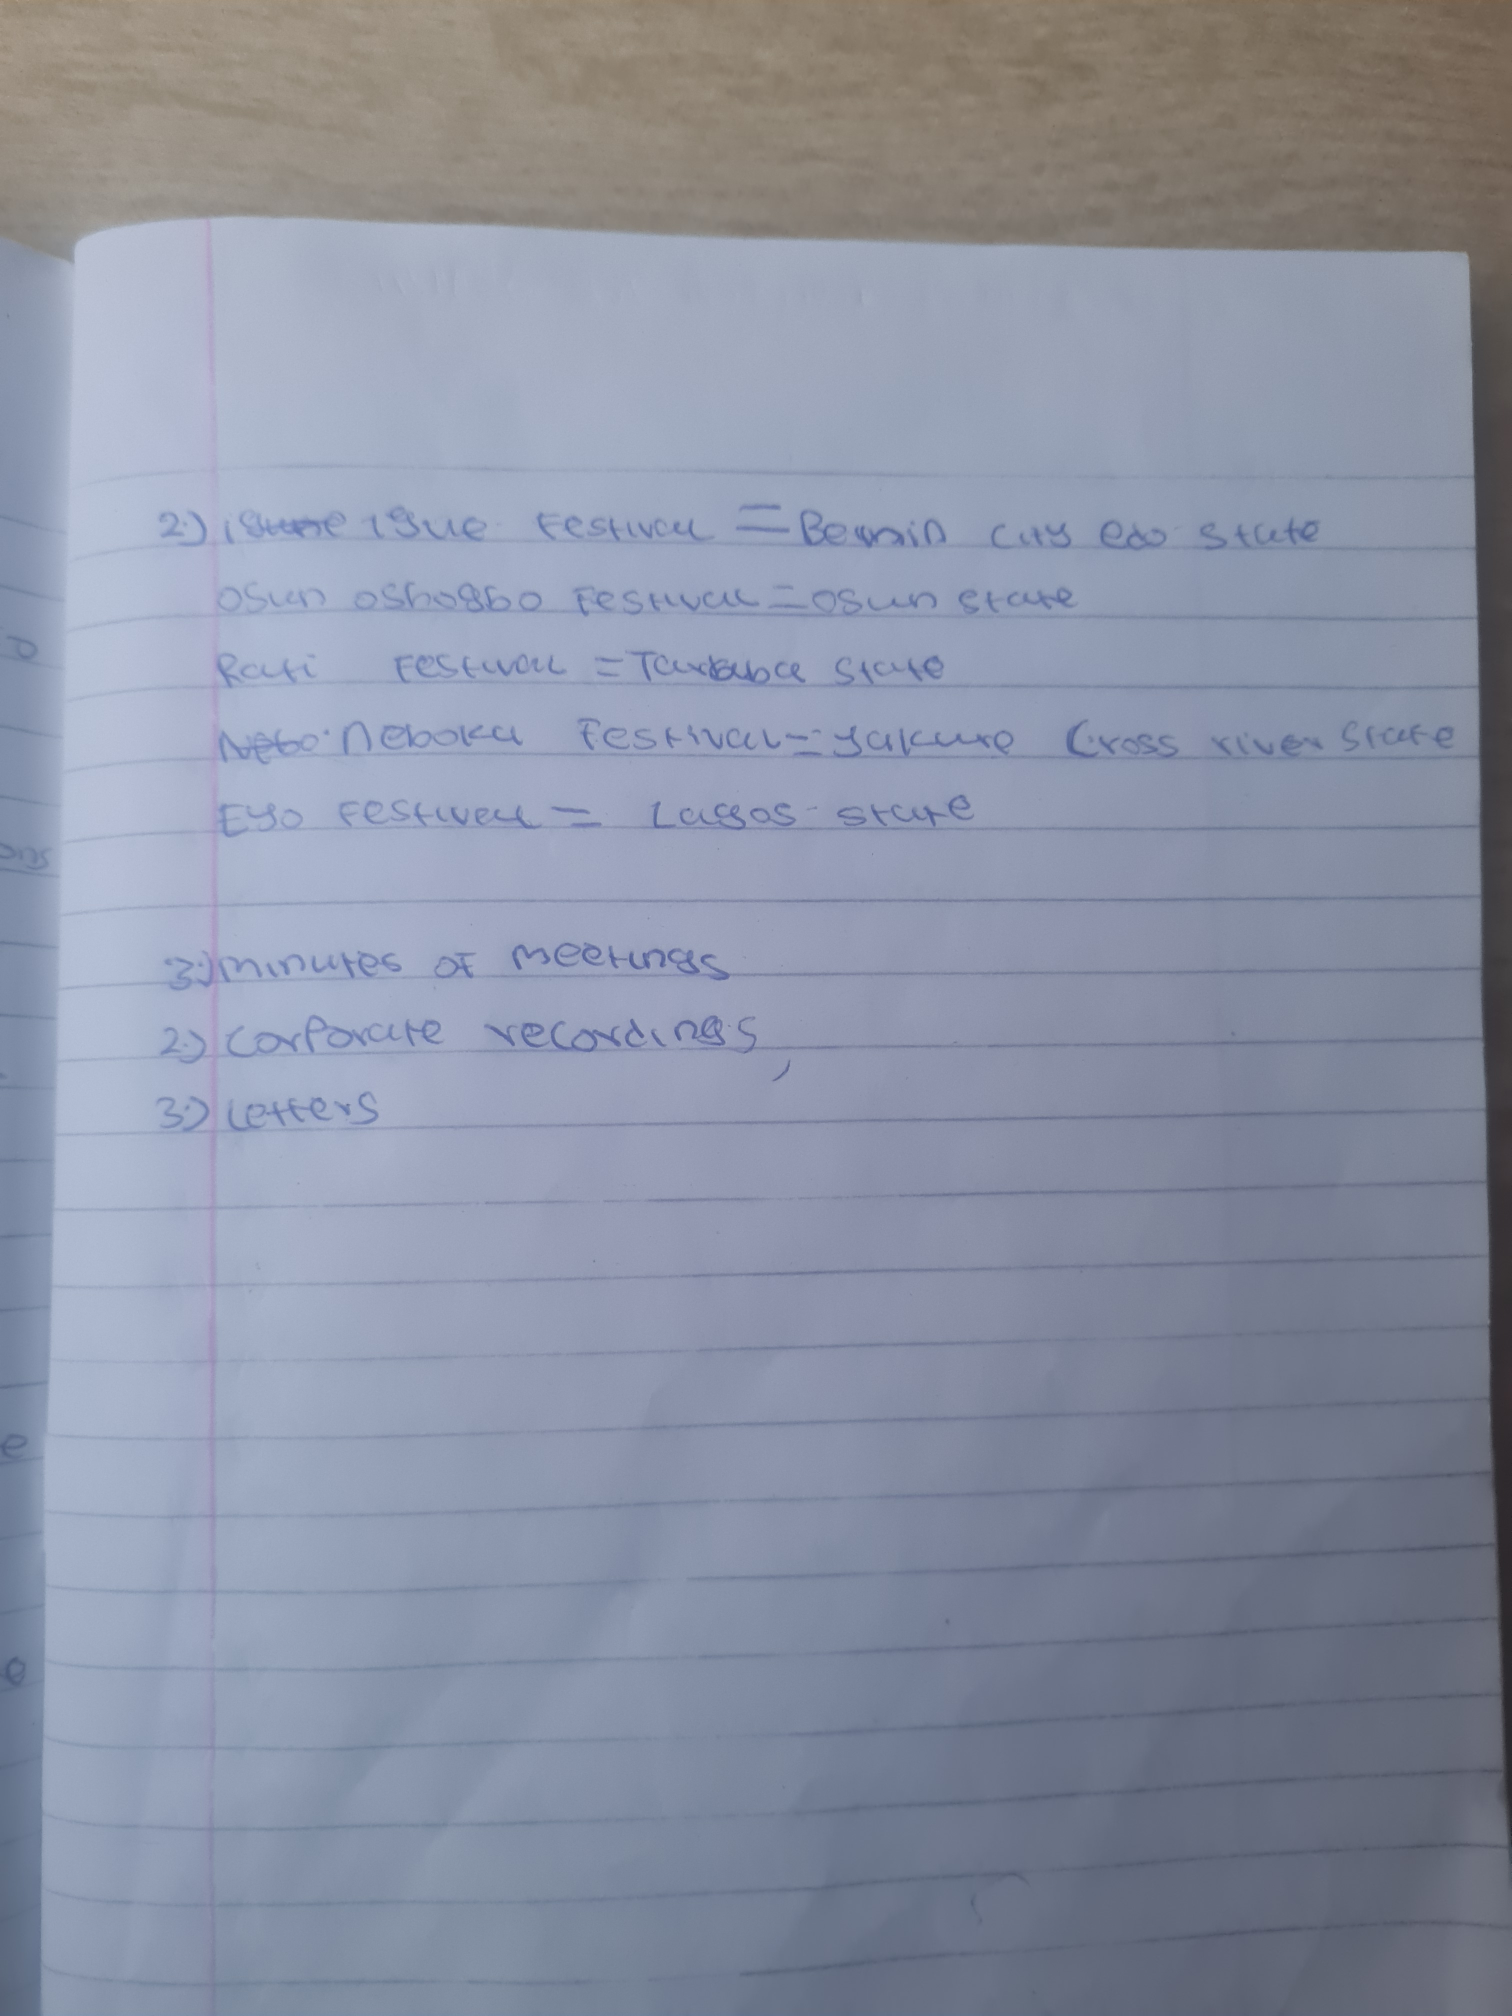 2.) igue Festival = Bennin city edo state
osun oshogbo Festival = osun state
Rati Festival = Taraba state
Neboka Festival = yakure Cross river state
Eyo Festival = Lagos state
3.) minutes of meetings
2.) corporate recordings,
3.) Letters